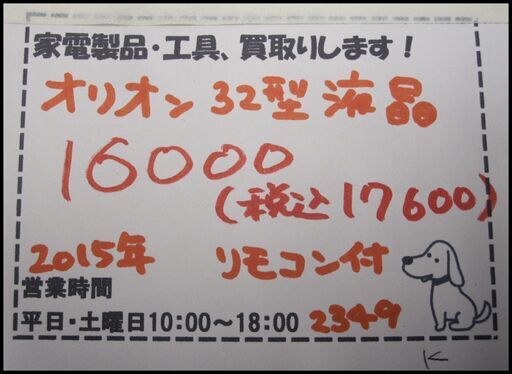 家電製品・工具、買取りします！
オリオン 32型 液晶
16000
(税込 17600)
2015年 リモコン付
営業時間
平日・土曜日10:00〜18:00 2349
K